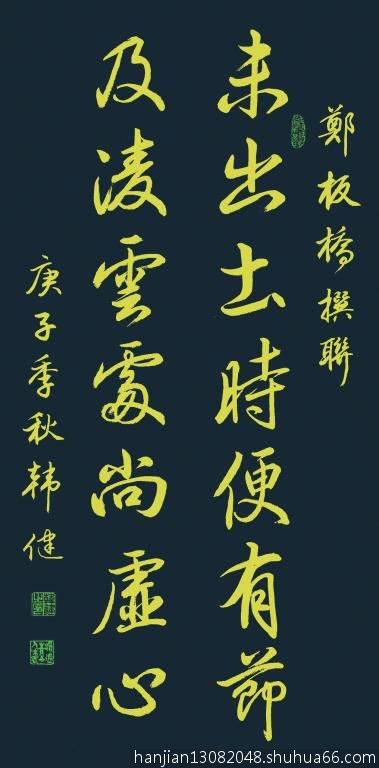 鄭板橋撰聯
未出土時便有節
及淩雲處尚虛心
庚子季秋韩健
hanjian13082048.shuhua66.com